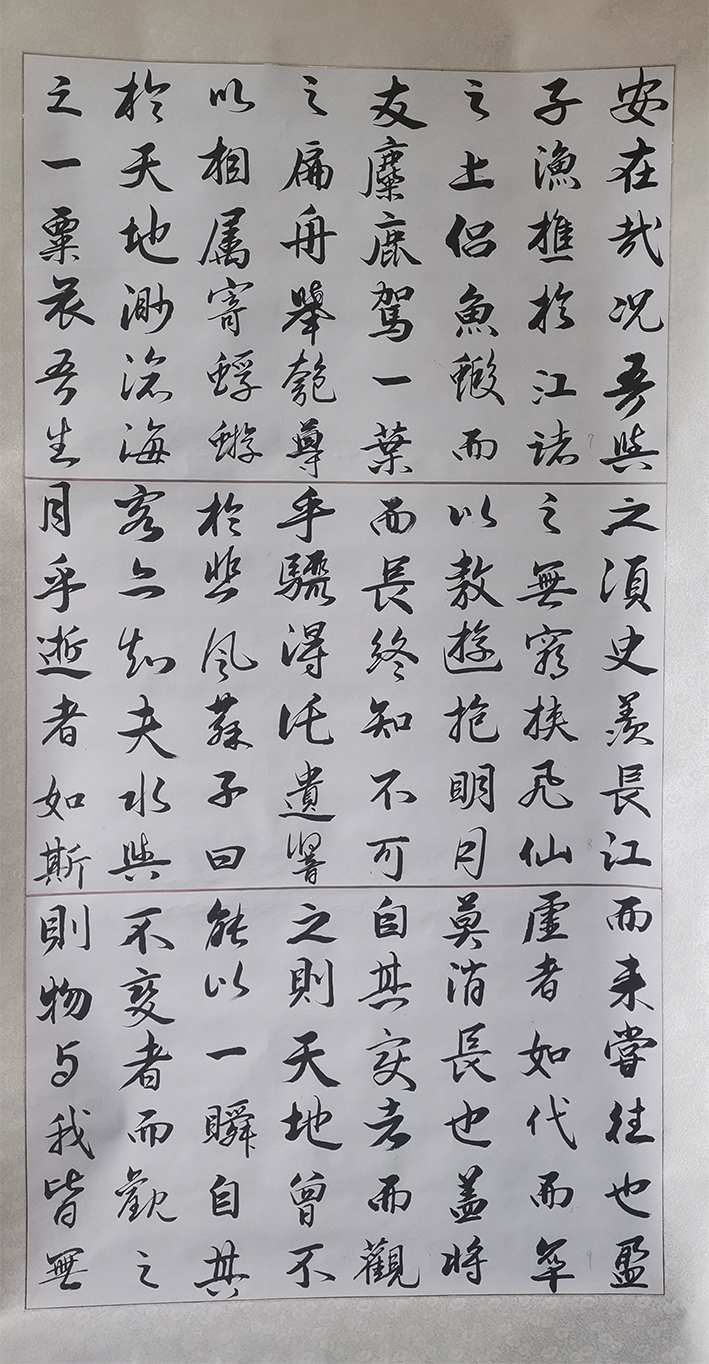 安在哉况吾與
子漁樵於江渚
之上侣魚蝦而
友麋鹿駕一葉
之扁舟舉匏尊
以相属寄蜉蝣
於天地渺滄海
之一粟哀吾生
7
之須臾羡長江
之無窮挟飛仙
以敖遊抱明月
而長終知不可
乎驟得託遺響
於悲風蘇子曰
客亦知夫水與
月乎逝者如斯
8
而未嘗往也盈
虚者如代而卒
莫消長也蓋將
自其變者而觀
之則天地曾不
能以一瞬自其
不變者而觀之
則物与我皆無
9